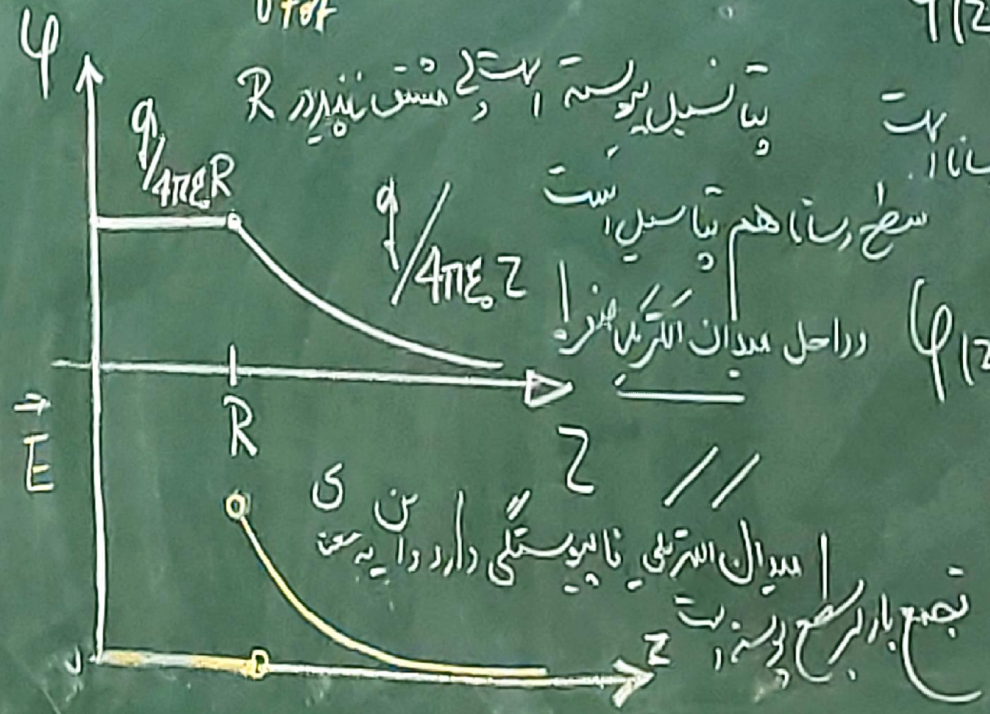 φ
پتانسیل پیوسته است ولی مشتق ناپذیر در R
q/4πε₀R
q/4πε₀Z
سطح رسانا هم پتاسیل است
در داخل میدان الکتریکی صفر!
φ(z
R
Z
E⃗
میدان الکتریکی ناپیوستگی دارد و این به معنی
تجمع بار بر سطح پوسته است
z